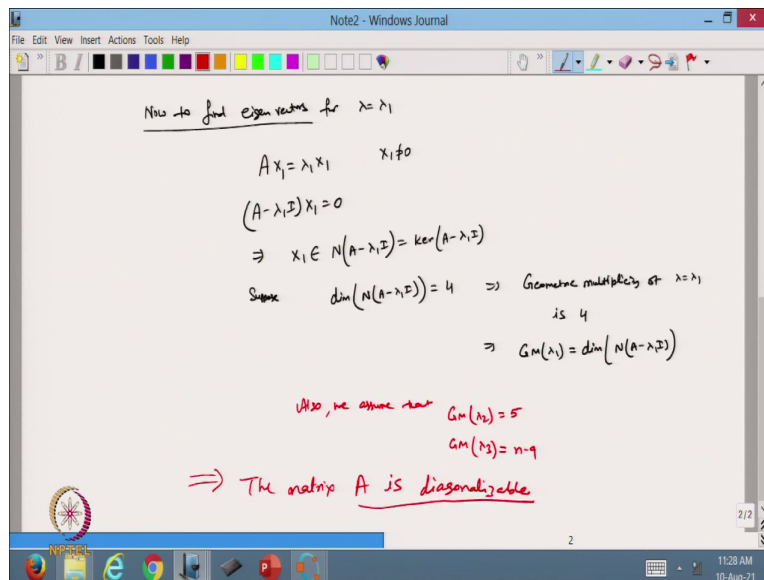 Note2 - Windows Journal
File Edit View Insert Actions Tools Help
Now to find eigen vectors for λ=λ₁
Ax₁=λ₁x₁ x₁≠0
(A-λ₁I)x₁=0
⇒ x₁∈ N(A-λ₁I)=ker(A-λ₁I)
Suppose dim(N(A-λ₁I))=4 ⇒ Geometric multiplicity of λ=λ₁
is 4
⇒ GM(λ₁)=dim(N(A-λ₁I))
Also, we assume that GM(λ₂)=5
GM(λ₃)=n-9
⇒ The matrix A is diagonalizable
NPTEL
2/2
2
11:28 AM
10-Aug-21